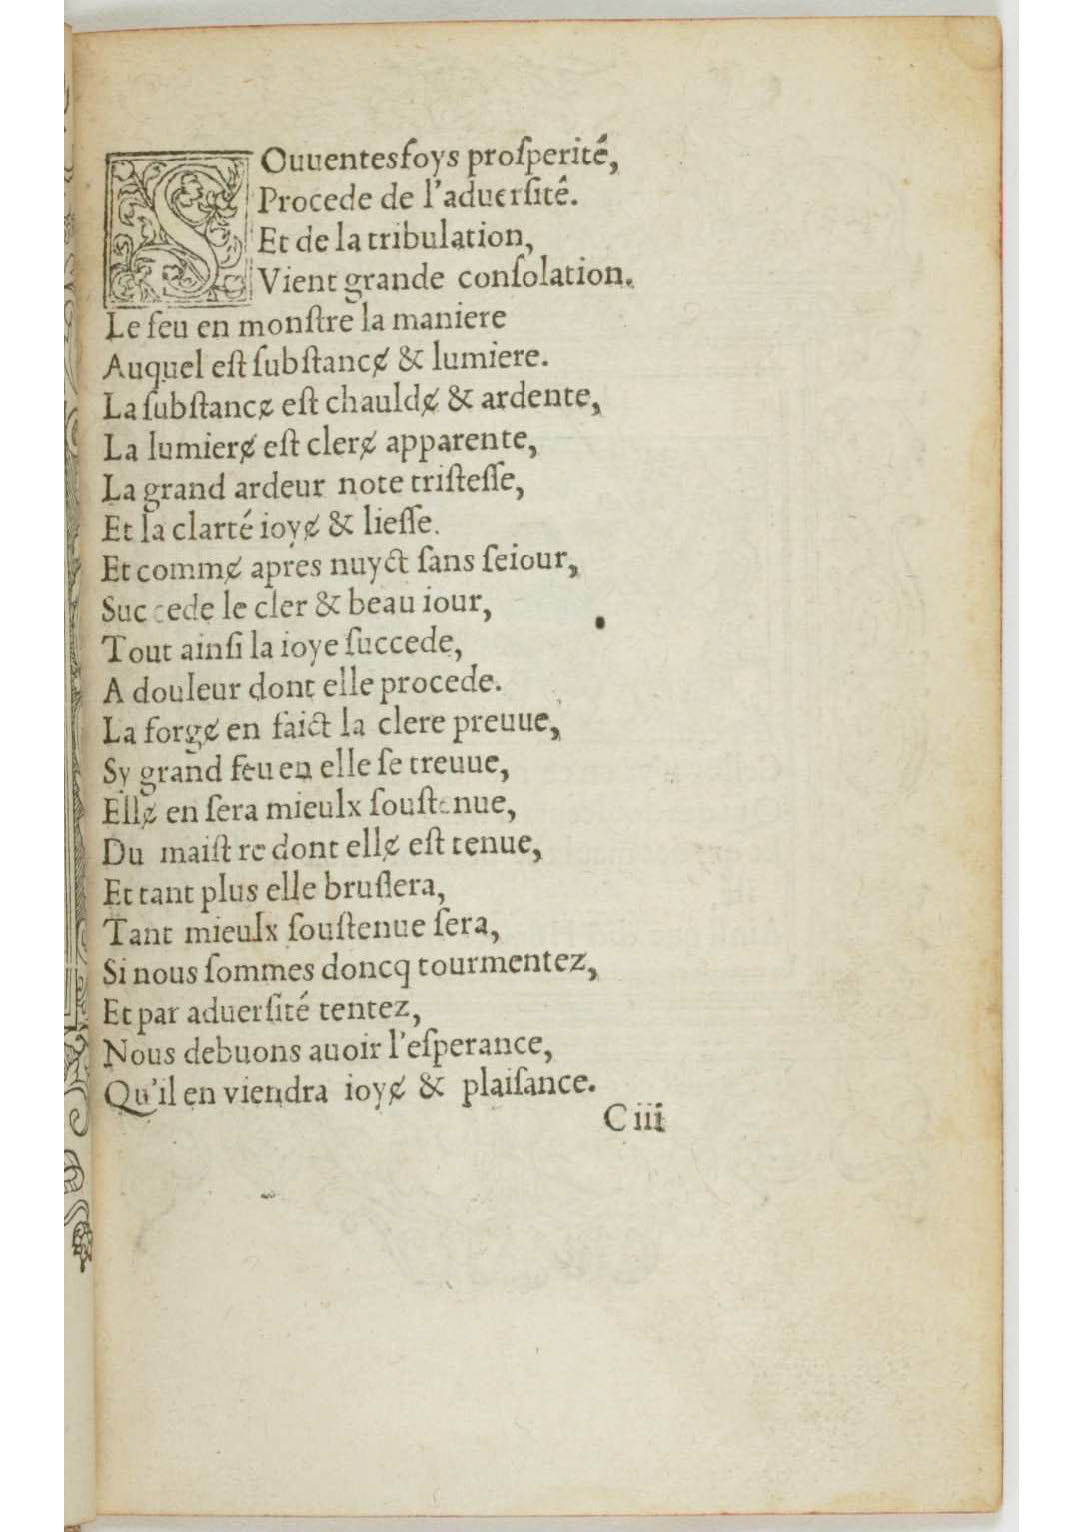 SOuuentesfoys proſperité,
Procede de l'aduerſité.
Et de la tribulation,
Vient grande conſolation.
Le feu en monſtre la maniere
Auquel eſt ſubſtancɇ & lumiere.
La ſubſtancɇ eſt chauldɇ & ardente,
La lumierɇ eſt clerɇ apparente,
La grand ardeur note triſteſſe,
Et la clarté ioyɇ & lieſſe.
Et commɇ apres nuyct ſans ſeiour,
Succede le cler & beau iour,
Tout ainſi la ioye ſuccede,
A douleur dont elle procede.
La forgɇ en faict la clere preuue,
Sy grand feu en elle ſe treuue,
Ellɇ en ſera mieulx ſouſtenue,
Du maiſtre dont ellɇ eſt tenue,
Et tant plus elle bruſlera,
Tant mieulx ſouſtenue ſera,
Si nous ſommes doncq tourmentez,
Et par aduerſité tentez,
Nous debuons auoir l'eſperance,
Qu'il en viendra ioyɇ & plaiſance.
C iii